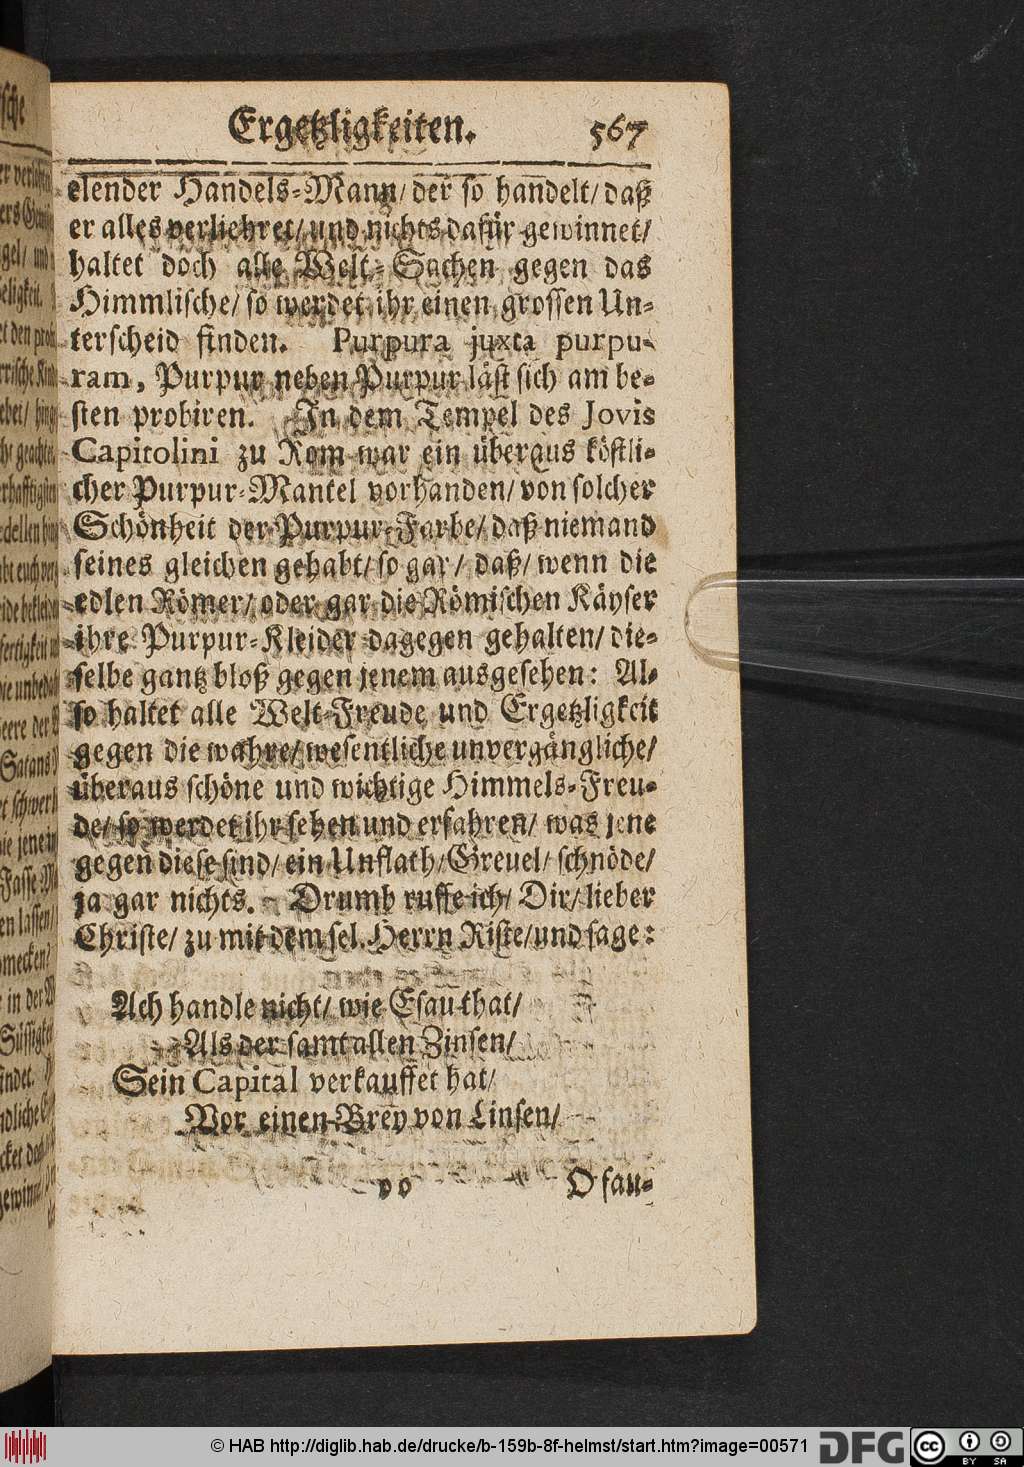 Ergetzligkeiten. 567
elender Handels-Mann/ der so handelt/ daß
er alles verliehret/ und nichts dafür gewinnet/
haltet doch alle Welt-Sachen gegen das
Himmlische/ so werdet ihr einen grossen Un-
terscheid finden. Purpura juxta purpu-
ram, Purpur neben Purpur läst sich am be-
sten probiren. In dem Tempel des Jovis
Capitolini zu Rom war ein überaus köstli-
cher Purpur-Mantel vorhanden/ von solcher
Schönheit der Purpur-Farbe/ daß niemand
seines gleichen gehabt/ so gar/ daß/ wenn die
edlen Römer/ oder gar die Römischen Käyser
ihre Purpur-Kleider dagegen gehalten/ die-
selbe gantz bloß gegen jenem ausgesehen: Al-
so haltet alle Welt-Freude und Ergetzligkeit
gegen die wahre/ wesentliche unvergängliche/
überaus schöne und wichtige Himmels-Freu-
de/ so werdet ihr sehen und erfahren/ was jene
gegen diese sind/ ein Unflath/ Greuel/ schnöde/
ja gar nichts. Drumb ruffe ich/ Dir/ lieber
Christe/ zu mit dem sel. Herrn Riste/ und sage:
Ach handle nicht/ wie Esau that/
Als der samt allen Zinsen/
Sein Capital verkauffet hat/
Vor einen Brey von Linsen/
oo O sau-
© HAB http://diglib.hab.de/drucke/b-159b-8f-helmst/start.htm?image=00571 DFG cc BY SA